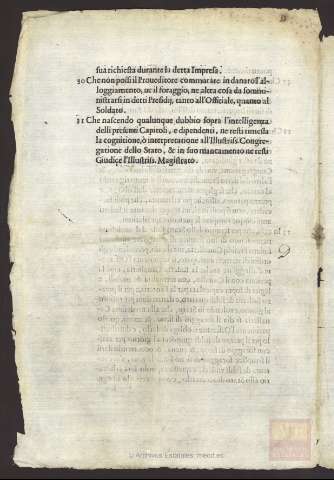 sua richiesta durante la detta Impresa.
30 Che non possi il Proueditore commutare in danaro l'al-
loggiamento, ne il foraggio, ne altra cosa da sommi-
nistrarsi in detti Presidij, tanto all'Officiale, quanto al
Soldato.
31 Che nascendo qualunque dubbio sopra l'intelligenza
delli presenti Capitoli, e dipendenti, ne resti rimessa
la cognitione, ò interpretatione all'Illustriss. Congre-
gatione dello Stato, & in suo mancamento ne resti
Giudice l'Illustriss. Magistrato.
© Archivos Estatales, mecd.es